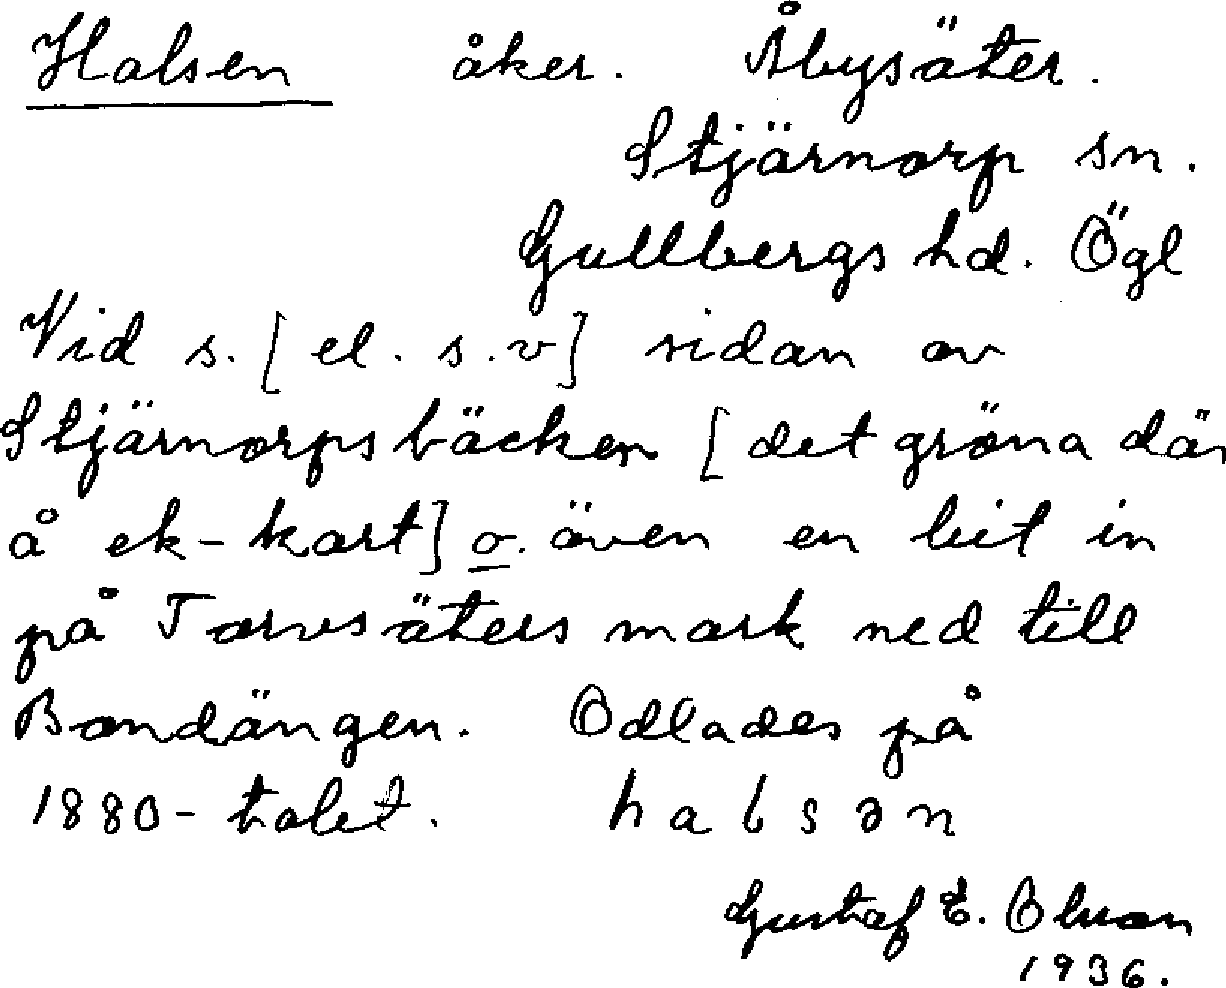 Halsen åker. Åbysäter.
Stjärnorp sn.
Gullbergs hd. Ögl
Vid s. [el. s.v] sidan av
Stjärnorpsbäcken [det gröna där
å ek-kart] o. även en bit in
på Torvsäters mark ned till
Bondängen. Odlades på
1880-talet. halsən
Gustaf E. Olsson
1936.